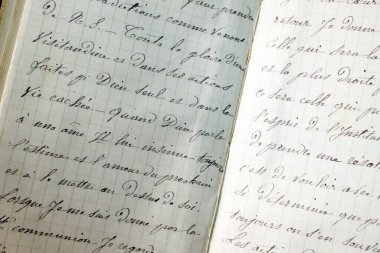 traditions comme nous
de N. S. — Toute la gloire d'une
Visitandine est dans ses actions
faites pr Dieu seul et dans la
Vie cachée — quand Dieu parle
à une âme Il lui insinue toujours
l'estime et l'amour du prochain
et à le mettre au dessus de soi.
Lorsque Je me suis donné par la
communion Je regarde
retour Je donne
Celle qui sera la
et la plus droite
ce sera celle qui
l'esprit de l'Institut
de prendre une
c'est de vouloir avec
si déterminée que
toujours on s'en
Les